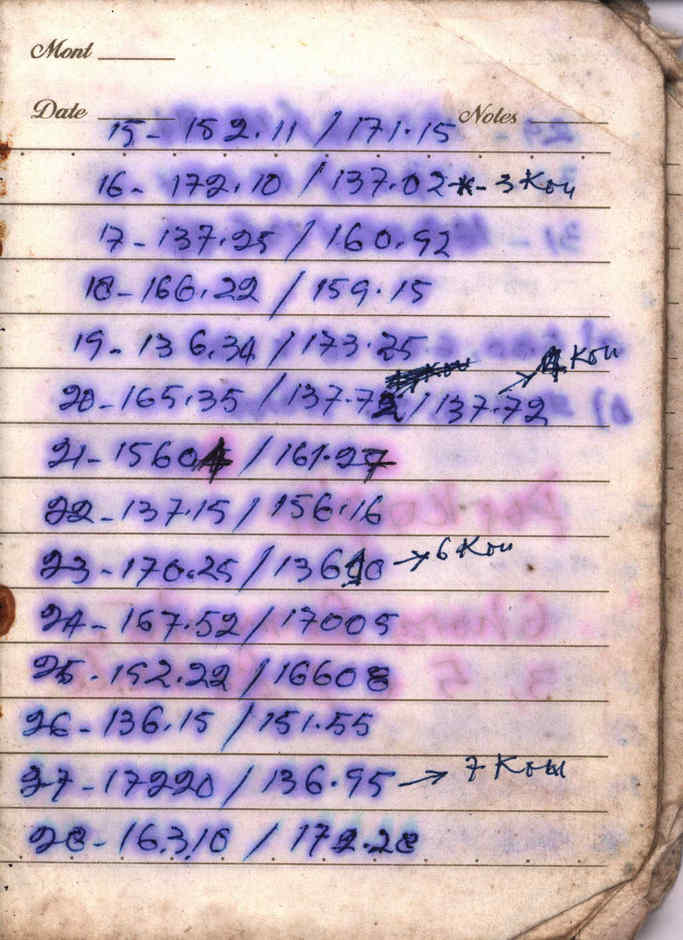 Mont
Date Notes
15- 152.11 / 171.15
16- 172.10 / 137.02 - 3 Kou
17- 137.25 / 160.92
18- 166.22 / 159.15
19- 136.34 / 173.25
20- 165.35 / 137.72 / 137.72 → Kou
21- 15604 / 161.27
22- 137.15 / 156.16
23- 170.25 / 13610 → 6 Kou
24- 167.52 / 17005
25- 152.22 / 16608
26- 136.15 / 151.55
27- 17220 / 136.95 → 7 Kou
28- 163.18 / 172.28